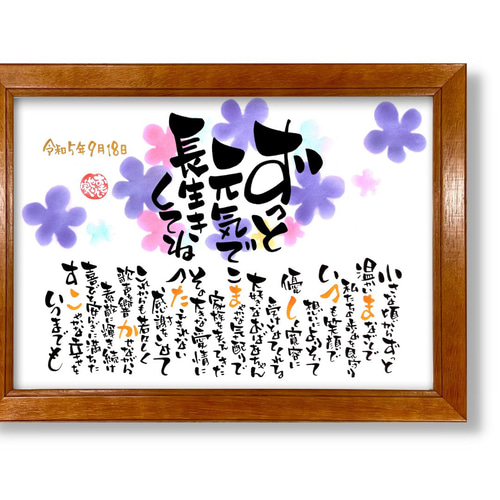 ずっと
元気で
長生き
してね
令和5年9月18日
小さな頃からずっと
温かいまなざしで
私たちを見守り
いつも笑顔で
想いによりそって
優しく寛容に
受け止めてくれる
大好きなおばあちゃん
こまやかな気配りで
家族を支えて下さった
その大きな愛情に
つたえきれない
感謝をいだいて
これからも若々しく
歌声を響かせながら
素敵に輝き続け
喜びと安らぎに満ちた
すこやかな
いつまでも